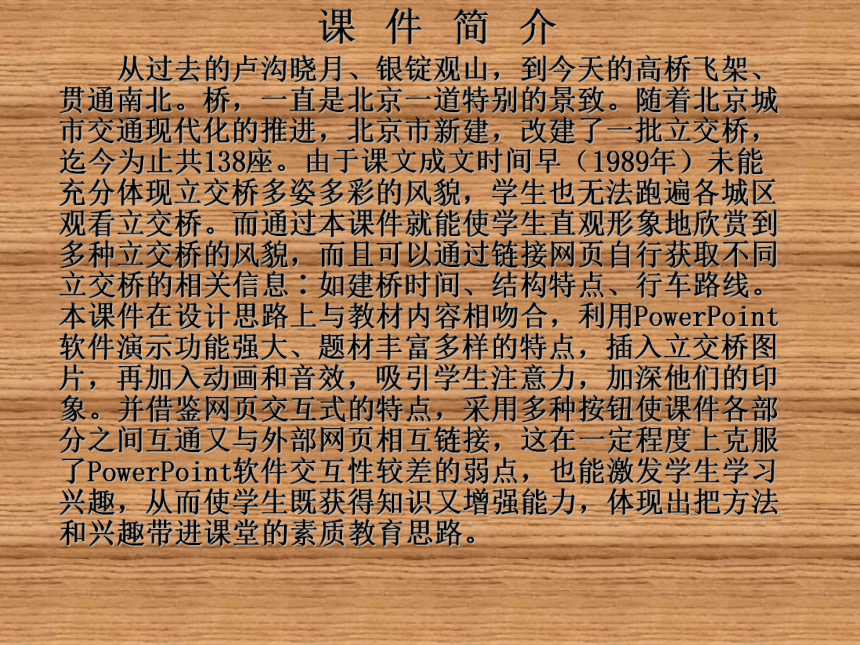 课 件 简 介
从过去的卢沟晓月、银锭观山，到今天的高桥飞架、
贯通南北。桥，一直是北京一道特别的景致。随着北京城
市交通现代化的推进，北京市新建，改建了一批立交桥，
迄今为止共138座。由于课文成文时间早（1989年）未能
充分体现立交桥多姿多彩的风貌，学生也无法跑遍各城区
观看立交桥。而通过本课件就能使学生直观形象地欣赏到
多种立交桥的风貌，而且可以通过链接网页自行获取不同
立交桥的相关信息：如建桥时间、结构特点、行车路线。
本课件在设计思路上与教材内容相吻合，利用PowerPoint
软件演示功能强大、题材丰富多样的特点，插入立交桥图
片，再加入动画和音效，吸引学生注意力，加深他们的印
象。并借鉴网页交互式的特点，采用多种按钮使课件各部
分之间互通又与外部网页相互链接，这在一定程度上克服
了PowerPoint软件交互性较差的弱点，也能激发学生学习
兴趣，从而使学生既获得知识又增强能力，体现出把方法
和兴趣带进课堂的素质教育思路。